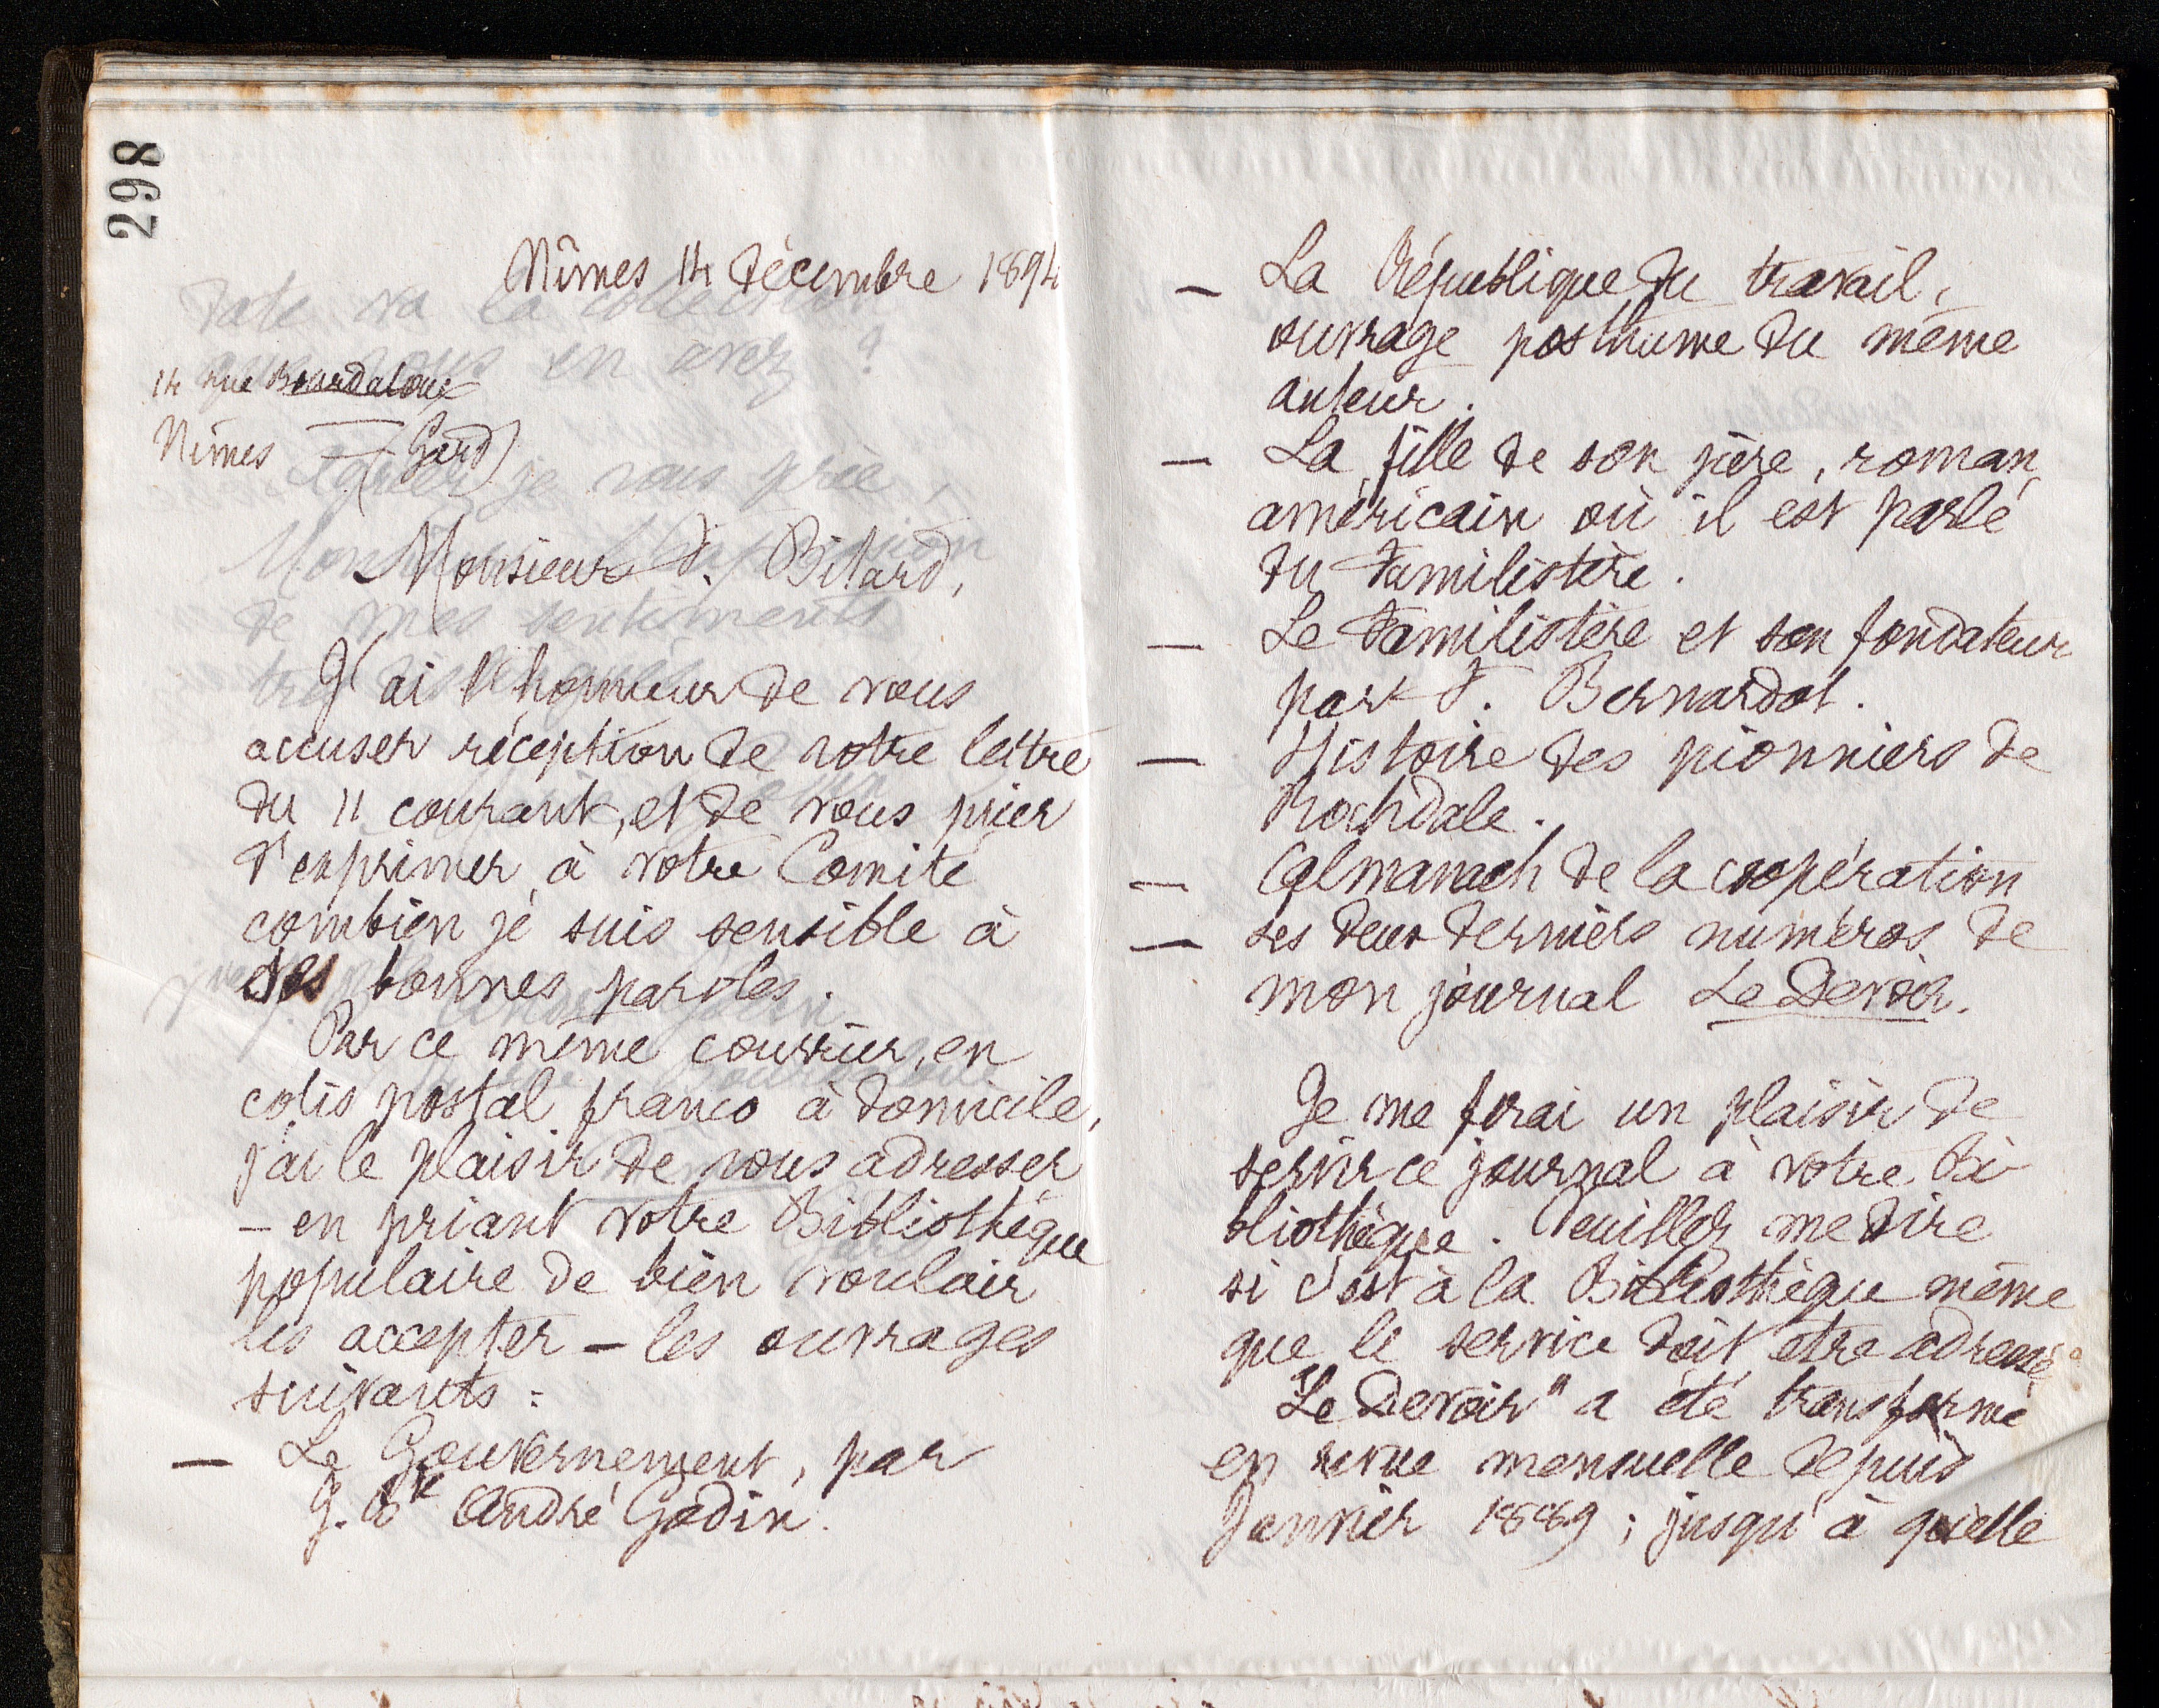 298
Nîmes 14 décembre 1894
14 rue Bourdaloue
Nîmes (Gard)
Monsieur F. Bitard,
J'ai l'honneur de vous
accuser réception de votre lettre
du 11 courant, et de vous prier
d'exprimer à votre Comité
combien je suis sensible à
ses bonnes paroles.
Par ce même courrier, en
colis postal franco à domicile,
j'ai le plaisir de vous adresser
— en priant votre Bibliothèque
populaire de bien vouloir
les accepter — les ouvrages
suivants :
— Le Gouvernement, par
J. Bte André Godin.
— La République du travail,
ouvrage posthume du même
auteur.
— La fille de son père, roman
américain où il est parlé
du Familistère.
— Le Familistère et son fondateur
par F. Bernardot.
— Histoire des pionniers de
Rochdale.
— Almanach de la coopération
— Les deux derniers numéros de
mon journal Le Devoir.
Je me ferai un plaisir de
servir ce journal à votre Bi-
bliothèque. Veuillez me dire
si c'est à la Bibliothèque même
que le service doit être adressé.
"Le Devoir" a été transformé
en revue mensuelle depuis
Janvier 1889 ; jusqu'à quelle